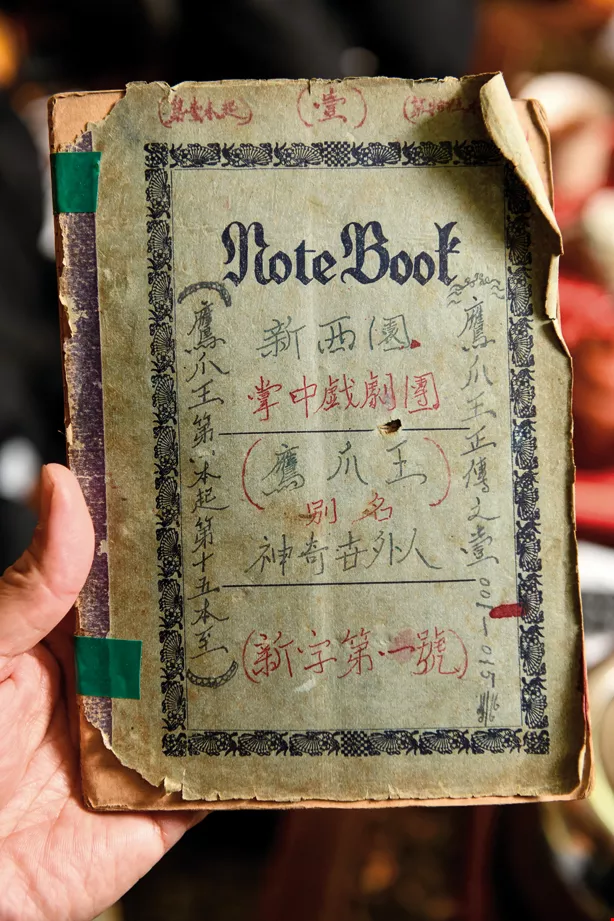 (第壹本起)
(壹)
Note Book
新西園
掌中戲劇團
(鷹爪王)
別名
神奇世外人
(新字第一號)
鷹爪王正傳文壹001-015
(鷹爪王第一本起第十五本至)